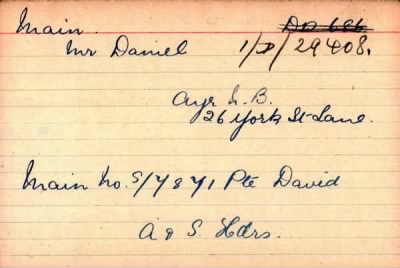 Main.
DD 686
Mr Daniel 1/D/29408.
Ayr N. B.
26 York St Lane.
Main No. S/7871 Pte David
A & S. Hdrs.